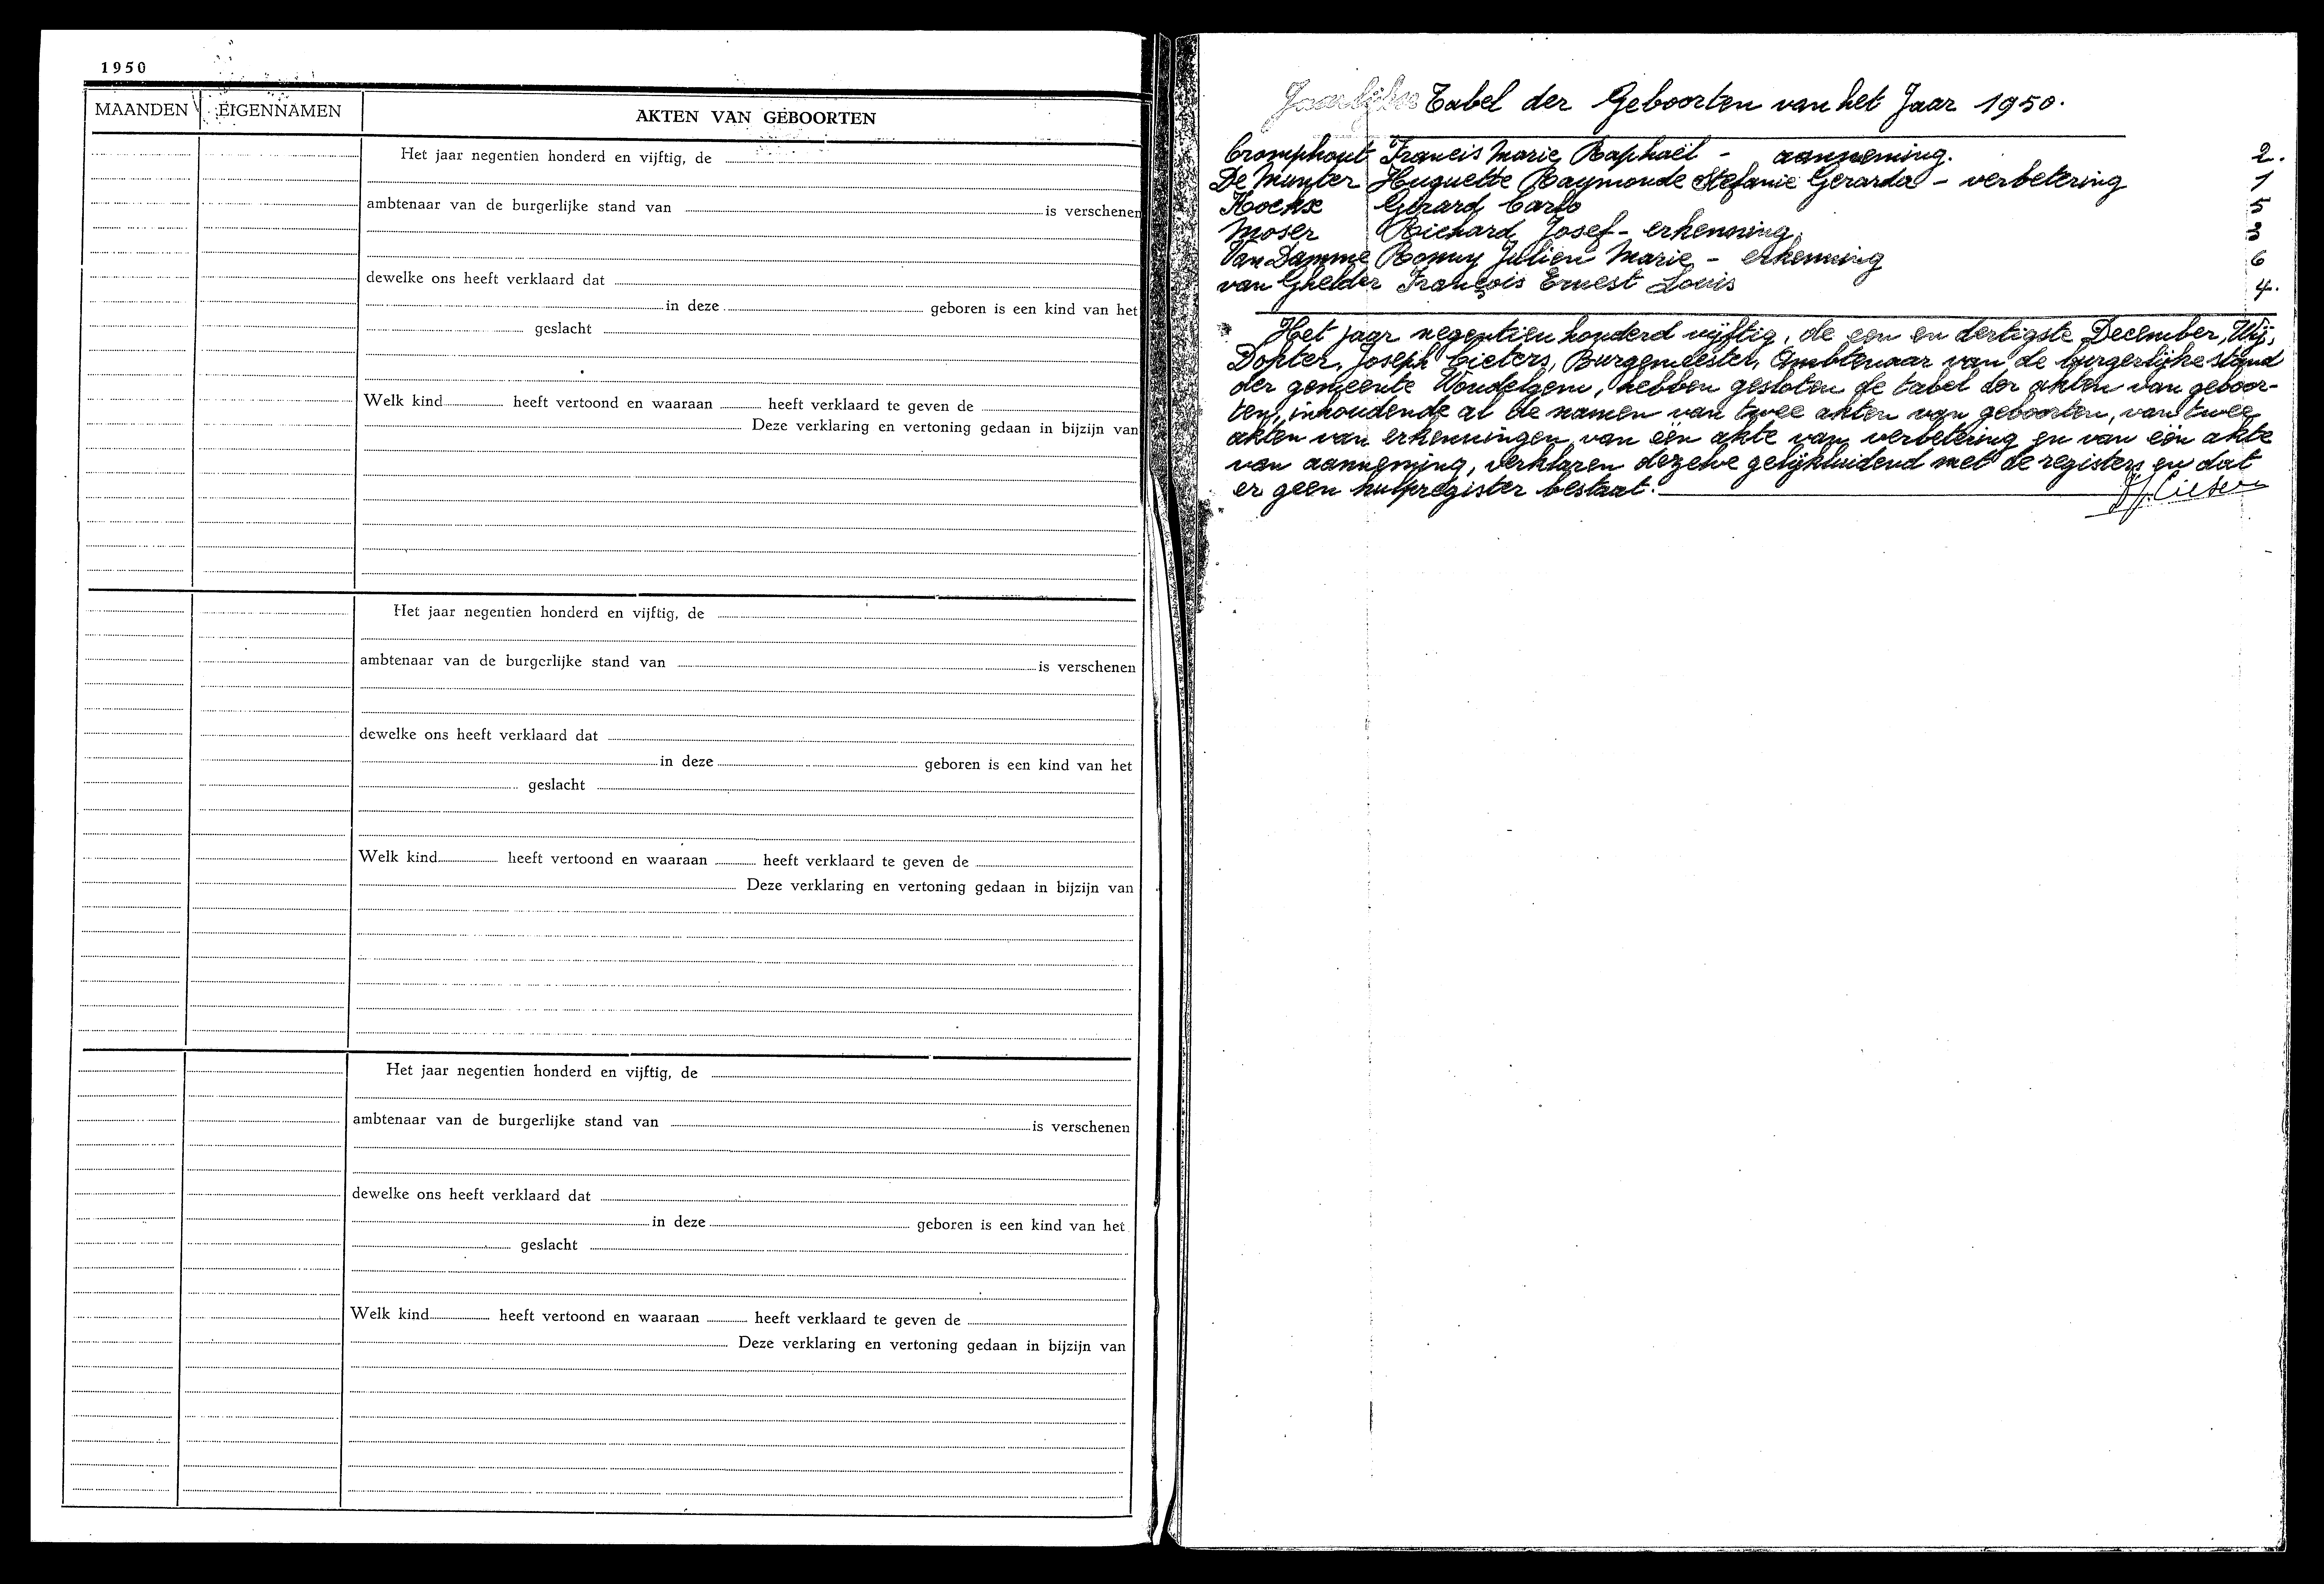 1950
MAANDEN EIGENNAMEN AKTEN VAN GEBOORTEN
Het jaar negentien honderd en vijftig, de
ambtenaar van de burgerlijke stand van is verschenen
dewelke ons heeft verklaard dat
in deze geboren is een kind van het
geslacht
Welk kind heeft vertoond en waaraan heeft verklaard te geven de
Deze verklaring en vertoning gedaan in bijzijn van
Het jaar negentien honderd en vijftig, de
ambtenaar van de burgerlijke stand van is verschenen
dewelke ons heeft verklaard dat
in deze geboren is een kind van het
geslacht
Welk kind heeft vertoond en waaraan heeft verklaard te geven de
Deze verklaring en vertoning gedaan in bijzijn van
Het jaar negentien honderd en vijftig, de
ambtenaar van de burgerlijke stand van is verschenen
dewelke ons heeft verklaard dat
in deze geboren is een kind van het
geslacht
Welk kind heeft vertoond en waaraan heeft verklaard te geven de
Deze verklaring en vertoning gedaan in bijzijn van
Jaarlijkse Tabel der Geboorten van het Jaar 1950.
Cromphout Francis Marie Raphaël - aanneming. 2.
De Munter Huguette Raymonde Stefanie Gerarda - verbetering 1
Kockx Gerard Carlo 5
Moser Richard Josef - erkenning. 3
Van Damme Ronny Julien Marie - erkenning 6
van Ghelder François Ernest Louis 4.
Het jaar negentien honderd vijftig, de een en dertigste December, Wij,
Dokter Joseph Cieters, Burgemeester, Ambtenaar van de burgerlijke stand
der gemeente Wondelgem, hebben gesloten de tabel der akten van geboor-
ten, inhoudende al de namen van twee akten van geboorten, van twee
akten van erkenningen, van één akte van verbetering en van één akte
van aanneming, verklaren dezelve gelijkluidend met de registers en dat
er geen hulpregister bestaat.